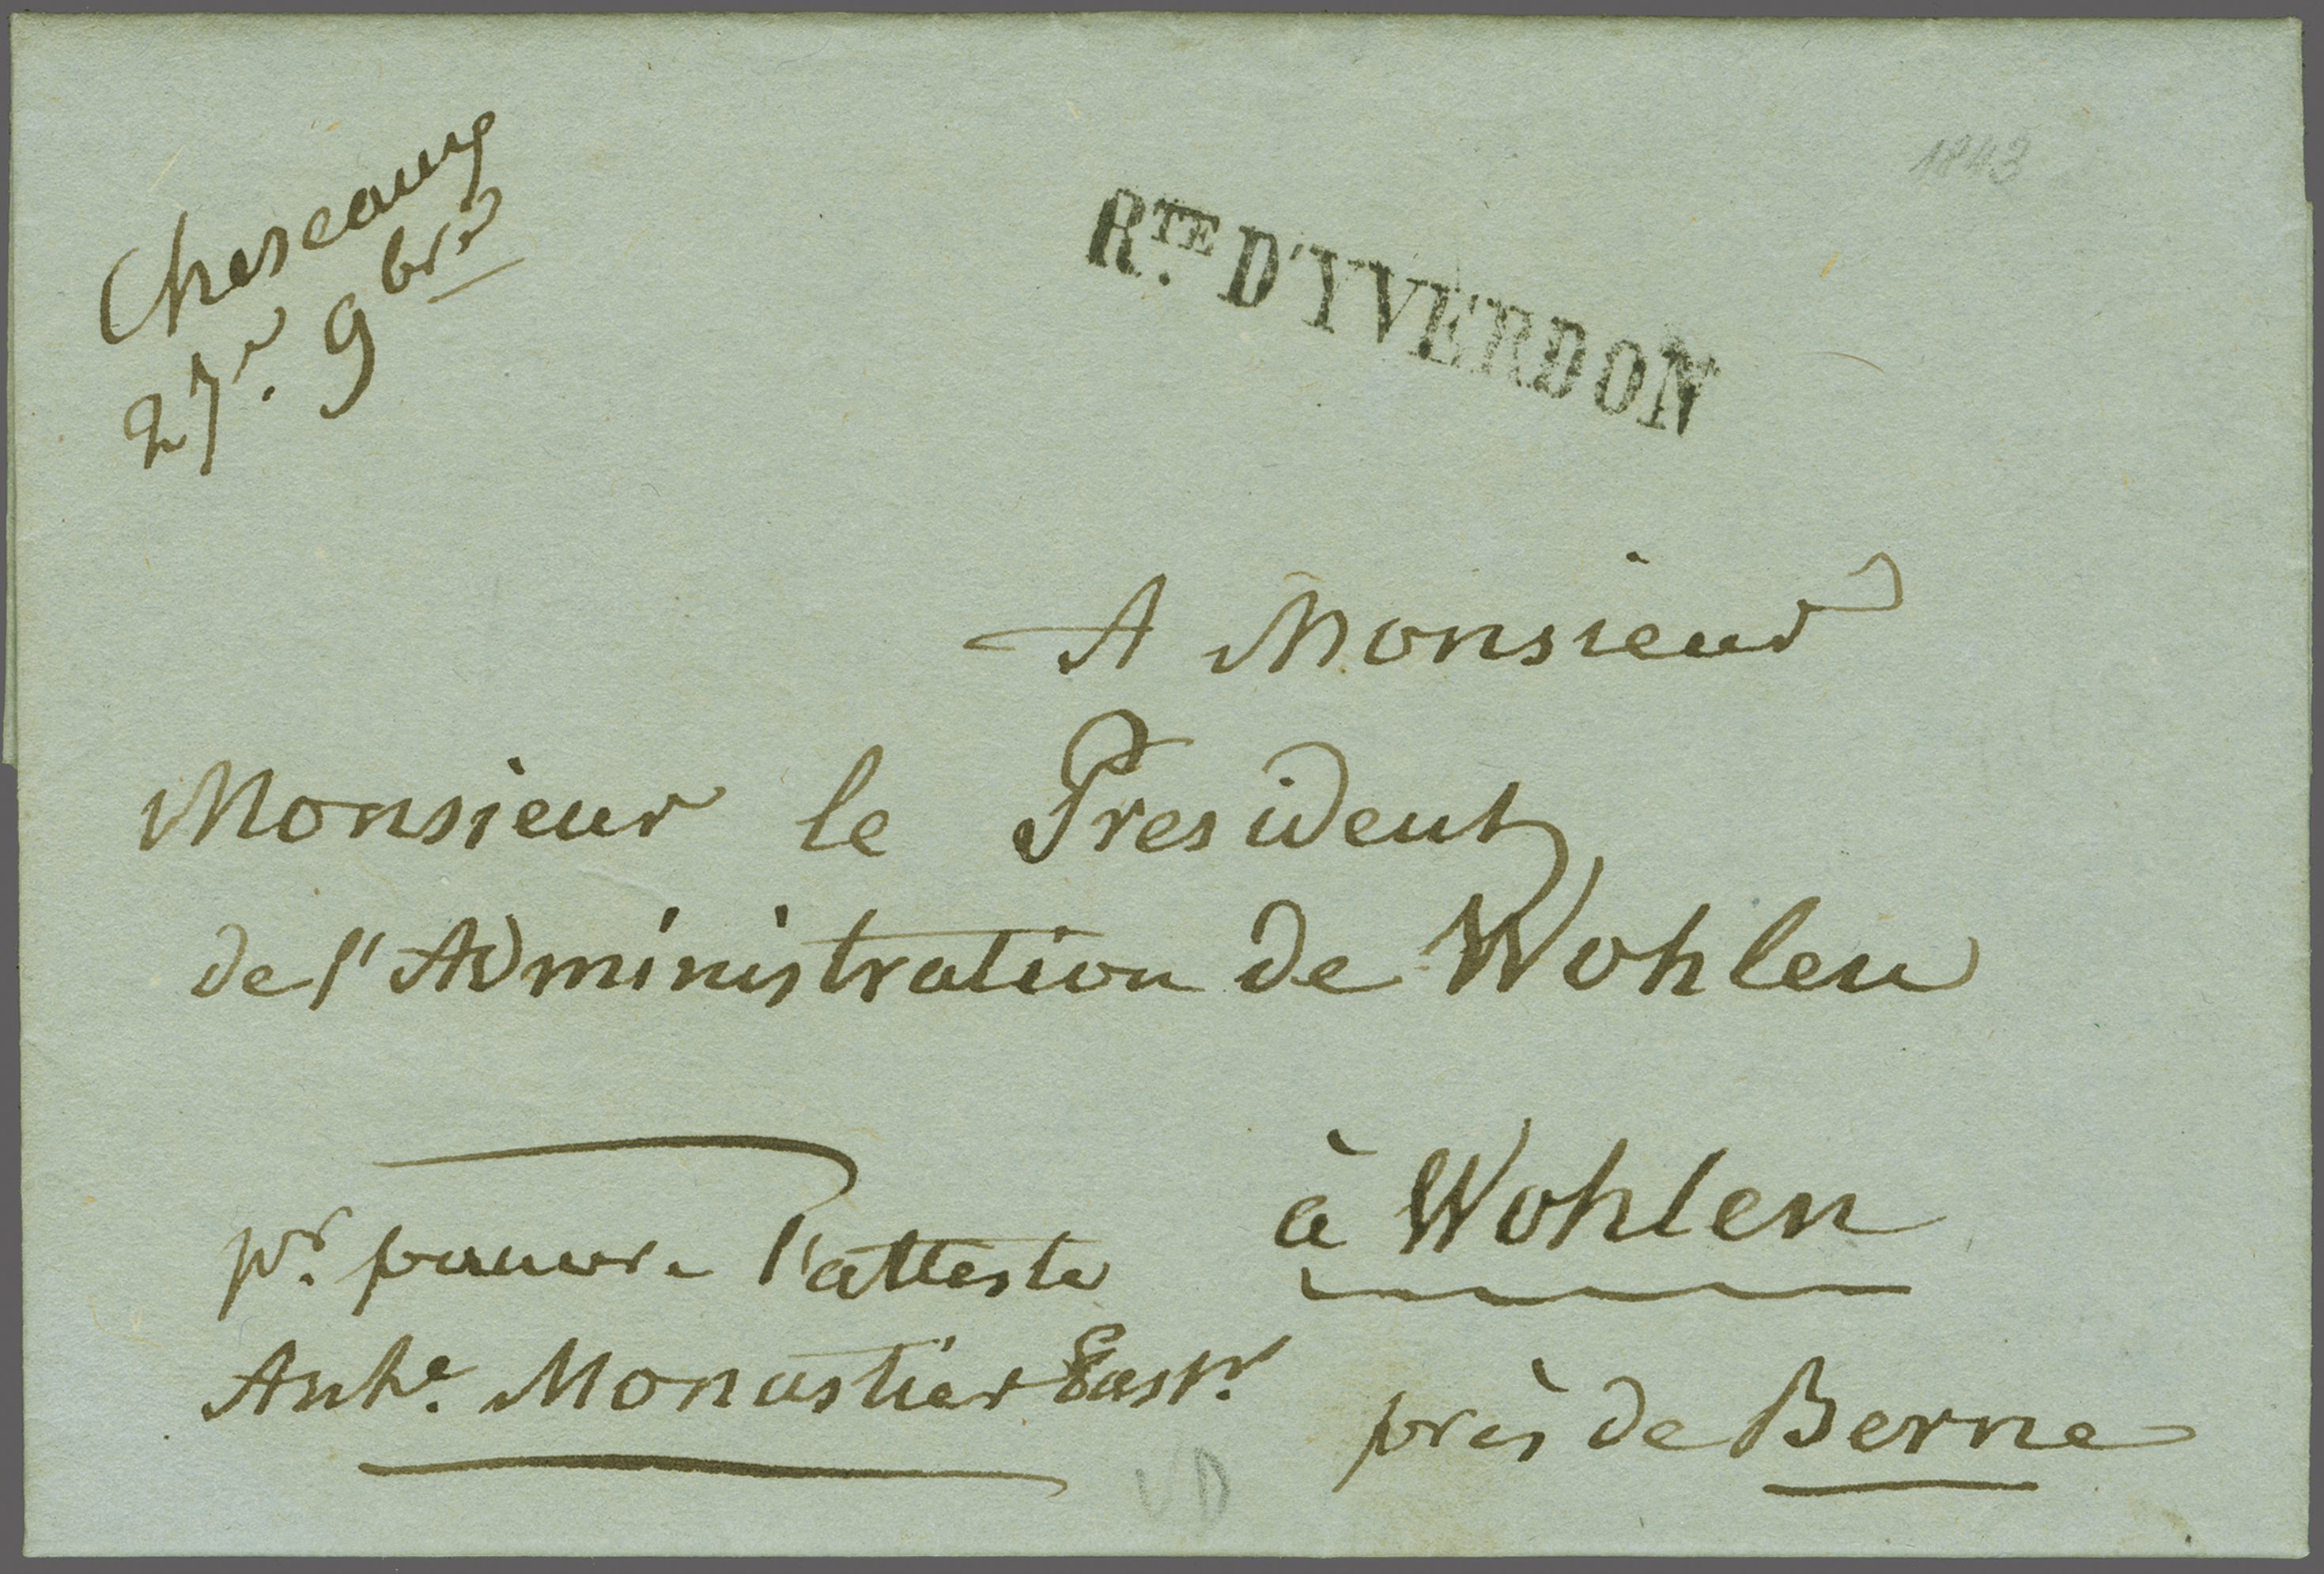 Cheseaux
27e. 9bre
1843
RTE. D'YVERDON
A Monsieur
Monsieur le President
de l'Administration de Wohlen
à Wohlen
pr. pauvre l'atteste
Ante. Monastier
près de Berne
VD